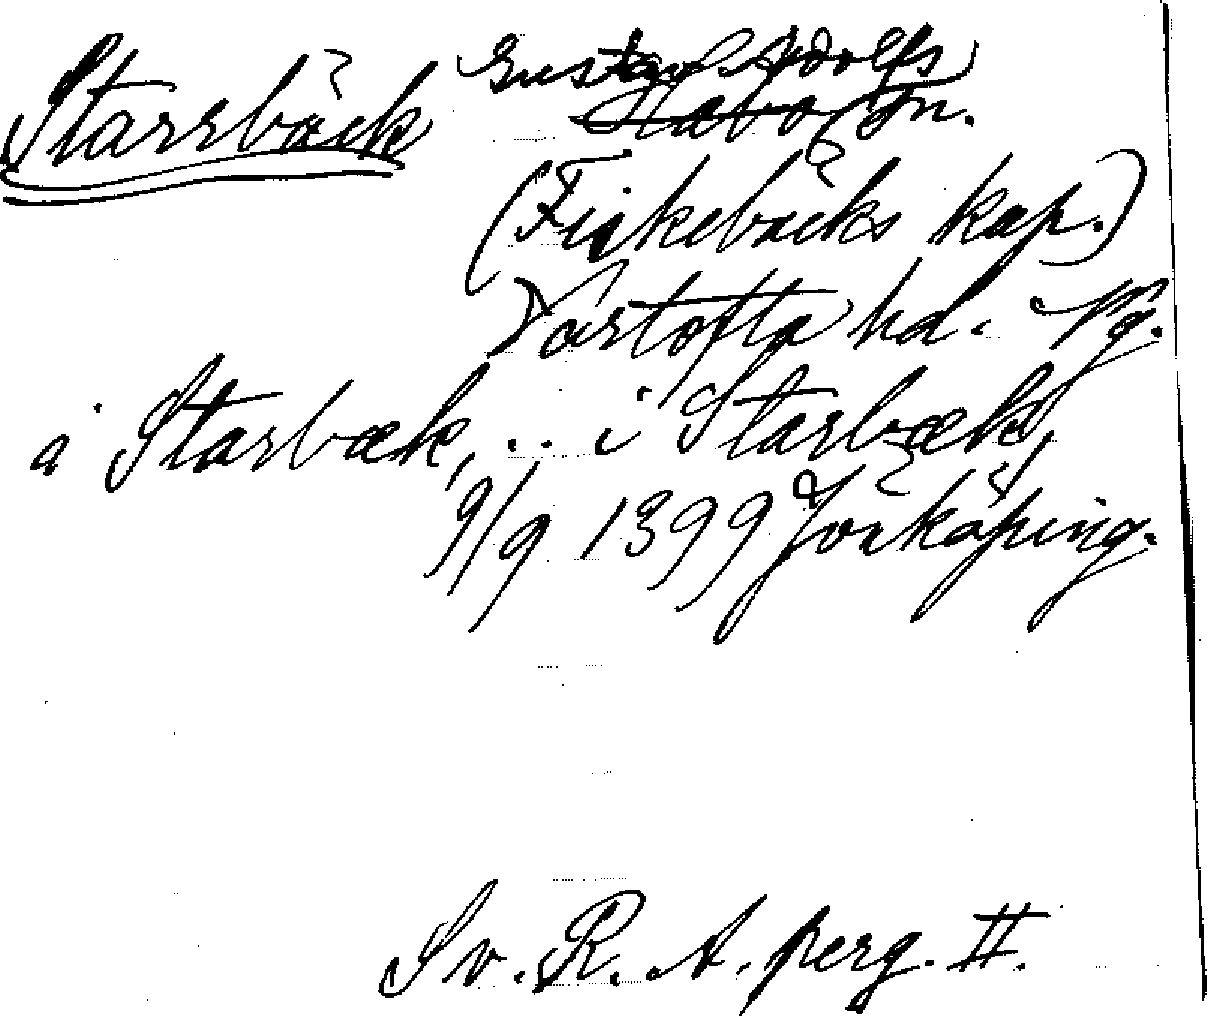 Starrbäck Gustav Adolfs
Habo sn.
(Fiskebäcks kap.)
Vartofta hd. Vg.
a Starbæk, .. i Starbæk,
9/9 1399 Jönköping.
Sv. R. A. perg. II.